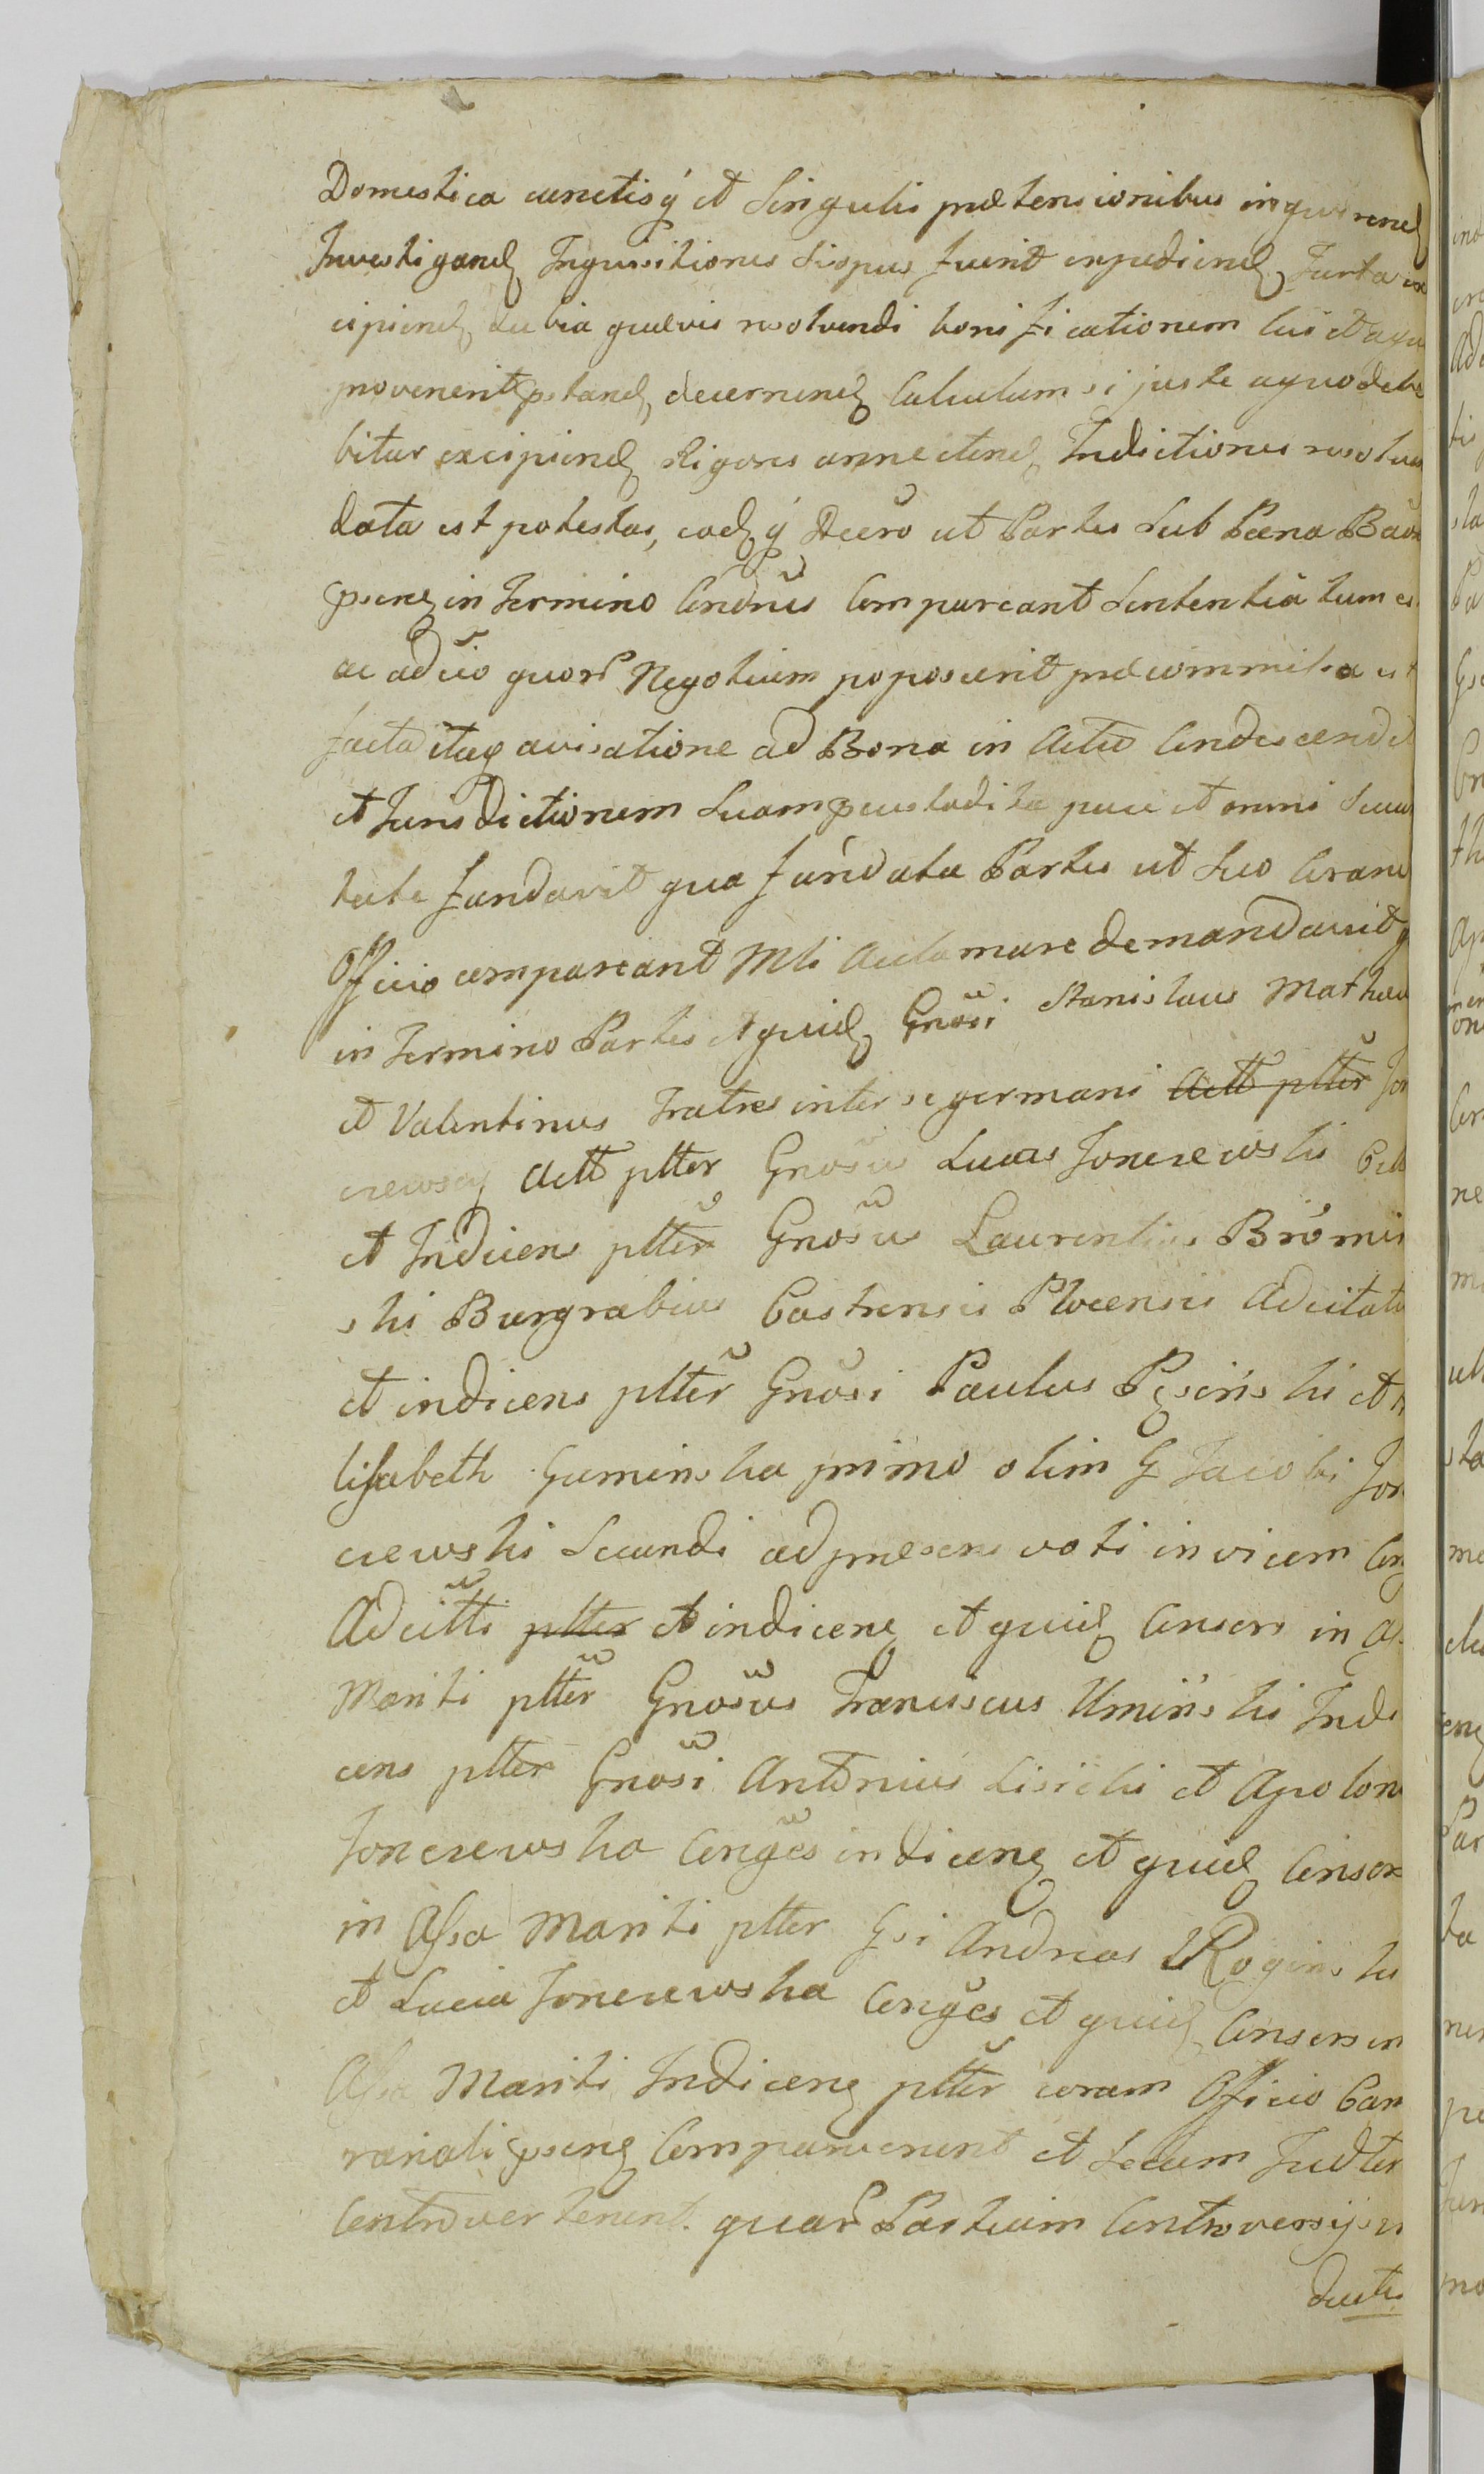 Domestica cunctisq́ et Singulis prætensionibus inquirend
Investigand Inquisitiones si opus fuerit expediend Jurta ex
cipiend dubia quævis resolvendi bonificationem cui et a quo
provenerit pstand, decernend Calculum si juste a quo debe
bitur excipiend Rigores annectend Indictiones resolven
data est potestas, eodq́ Decro ut Partes Sub Pæna Bann
psene in Termino Condnis Compareant Sententia tum ex
ac adcio quorū Negotium poposcerit præcommissa est
facta itaq avisatione ad Bona in Actu Condescendit
et Jurisdictionem Suam pcustodita pace et omni Secur
tate fundavit qua fundata Partes ut Suo Coram
Officio compareant Mli Acclamare demandavit q
in Termino Partes et quid Gnosi Stanislaus Mathæu
et Valentinus Fratres inter se germani Actt pltter Jon
czewscy Actt pltter Gnosus Lucas Jonczewski Citt
et Indicens pltter Gnosus Laurentius Bromir
ski Burgrabius Castrensis Plocensis Adcitatu
et indicens pltter Gnosi Paulus Pęsiński et E
lisabeth Guminska primo olim G Jacobi Jon
czewski Secundi ad præsens voti invicem Con
Adcitti pltter et indicene et quid Consors in As
Mariti pltter Gnosus Franciscus Umiński Indi
cens pltter Gnosi Antonius Lisicki et Apolon
Jonczewska Conges indicene et quid Consor
in Assa Mariti pltter Gsi Andreas Rogins ki
et Lucia Jonczewska Conges et quid Consors in
Assa Mariti Indicene pltter coram Officio Cam
rariali psene Comparuerunt et Secum Judter
Controverterunt. quarū Partium Controversijs ex
ductis